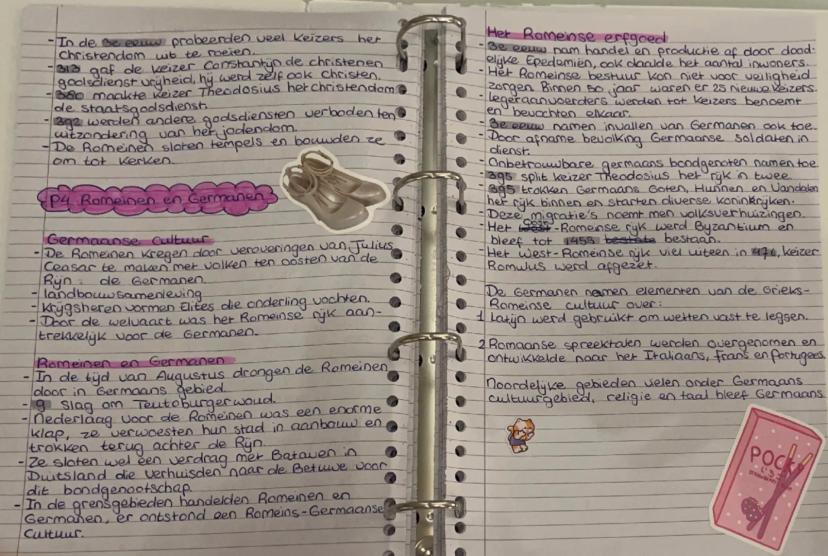 - In de 3e eeuw probeerden veel keizers het
christendom uit te roeien.
- 313 gaf de keizer Constantijn de christenen
godsdienst vrijheid, hij werd zelf ook christen.
- 380 maakte keizer Theodosius het christendom
de staatsgodsdienst.
- 392 werden andere godsdiensten verboden ten
uitzondering van het jodendom.
- De Romeinen sloten tempels en bouwden ze
om tot kerken.
P4 Romeinen en Germanen
Germaanse cultuur
- De Romeinen kregen door veroveringen van Julius
Ceasar te maken met volken ten oosten van de
Rijn: de Germanen.
- landbouwsamenleving
- Krijgsheren vormen Elites die onderling vochten.
- Door de welvaart was het Romeinse rijk aan-
trekkelijk voor de Germanen.
Romeinen en Germanen
- In de tijd van Augustus drongen de Romeinen
door in Germaans gebied.
- 9 Slag om Teutoburgerwoud.
- Nederlaag voor de Romeinen was een enorme
klap, ze verwoesten hun stad in aanbouw en
trokken terug achter de Rijn.
- Ze sloten wel een verdrag met Bataven in
Duitsland die verhuisden naar de Betuwe voor
dit bondgenootschap.
- In de grensgebieden handelden Romeinen en
Germanen, er ontstond een Romeins-Germaanse
Cultuur.
Het Romeinse erfgoed
- 3e eeuw nam handel en productie af door dood-
elijke Epedamiën, ook daalde het aantal inwoners.
- Het Romeinse bestuur kon niet voor veiligheid
zorgen. Binnen 50 jaar waren er 25 nieuwe keizers.
- legeraanvoerders werden tot keizers benoemt
en bevochten elkaar.
- 3e eeuw namen invallen van Germanen ook toe.
- Door afname bevolking Germaanse soldaten in
dienst.
- Onbetrouwbare germaans bondgenoten namen toe.
- 395 split keizer Theodosius het rijk in twee.
- 395 trokken Germaans Goten, Hunnen en Vandalen
het rijk binnen en starten diverse koninkrijken.
- Deze migratie's noemt men volksverhuizingen.
- Het Oost-Romeinse rijk werd Byzantium en
bleef tot 1453 bestaan.
- Het West-Romeinse rijk viel uiteen in 476, keizer
Romulus werd afgezet.
De Germanen namen elementen van de Grieks-
Romeinse cultuur over:
1 Latijn werd gebruikt om wetten vast te leggen.
2 Romaanse spreektalen werden overgenomen en
ontwikkelde naar het Italiaans, frans en portugees.
Noordelijke gebieden vielen onder Germaans
cultuurgebied, religie en taal bleef Germaans.
POCKY